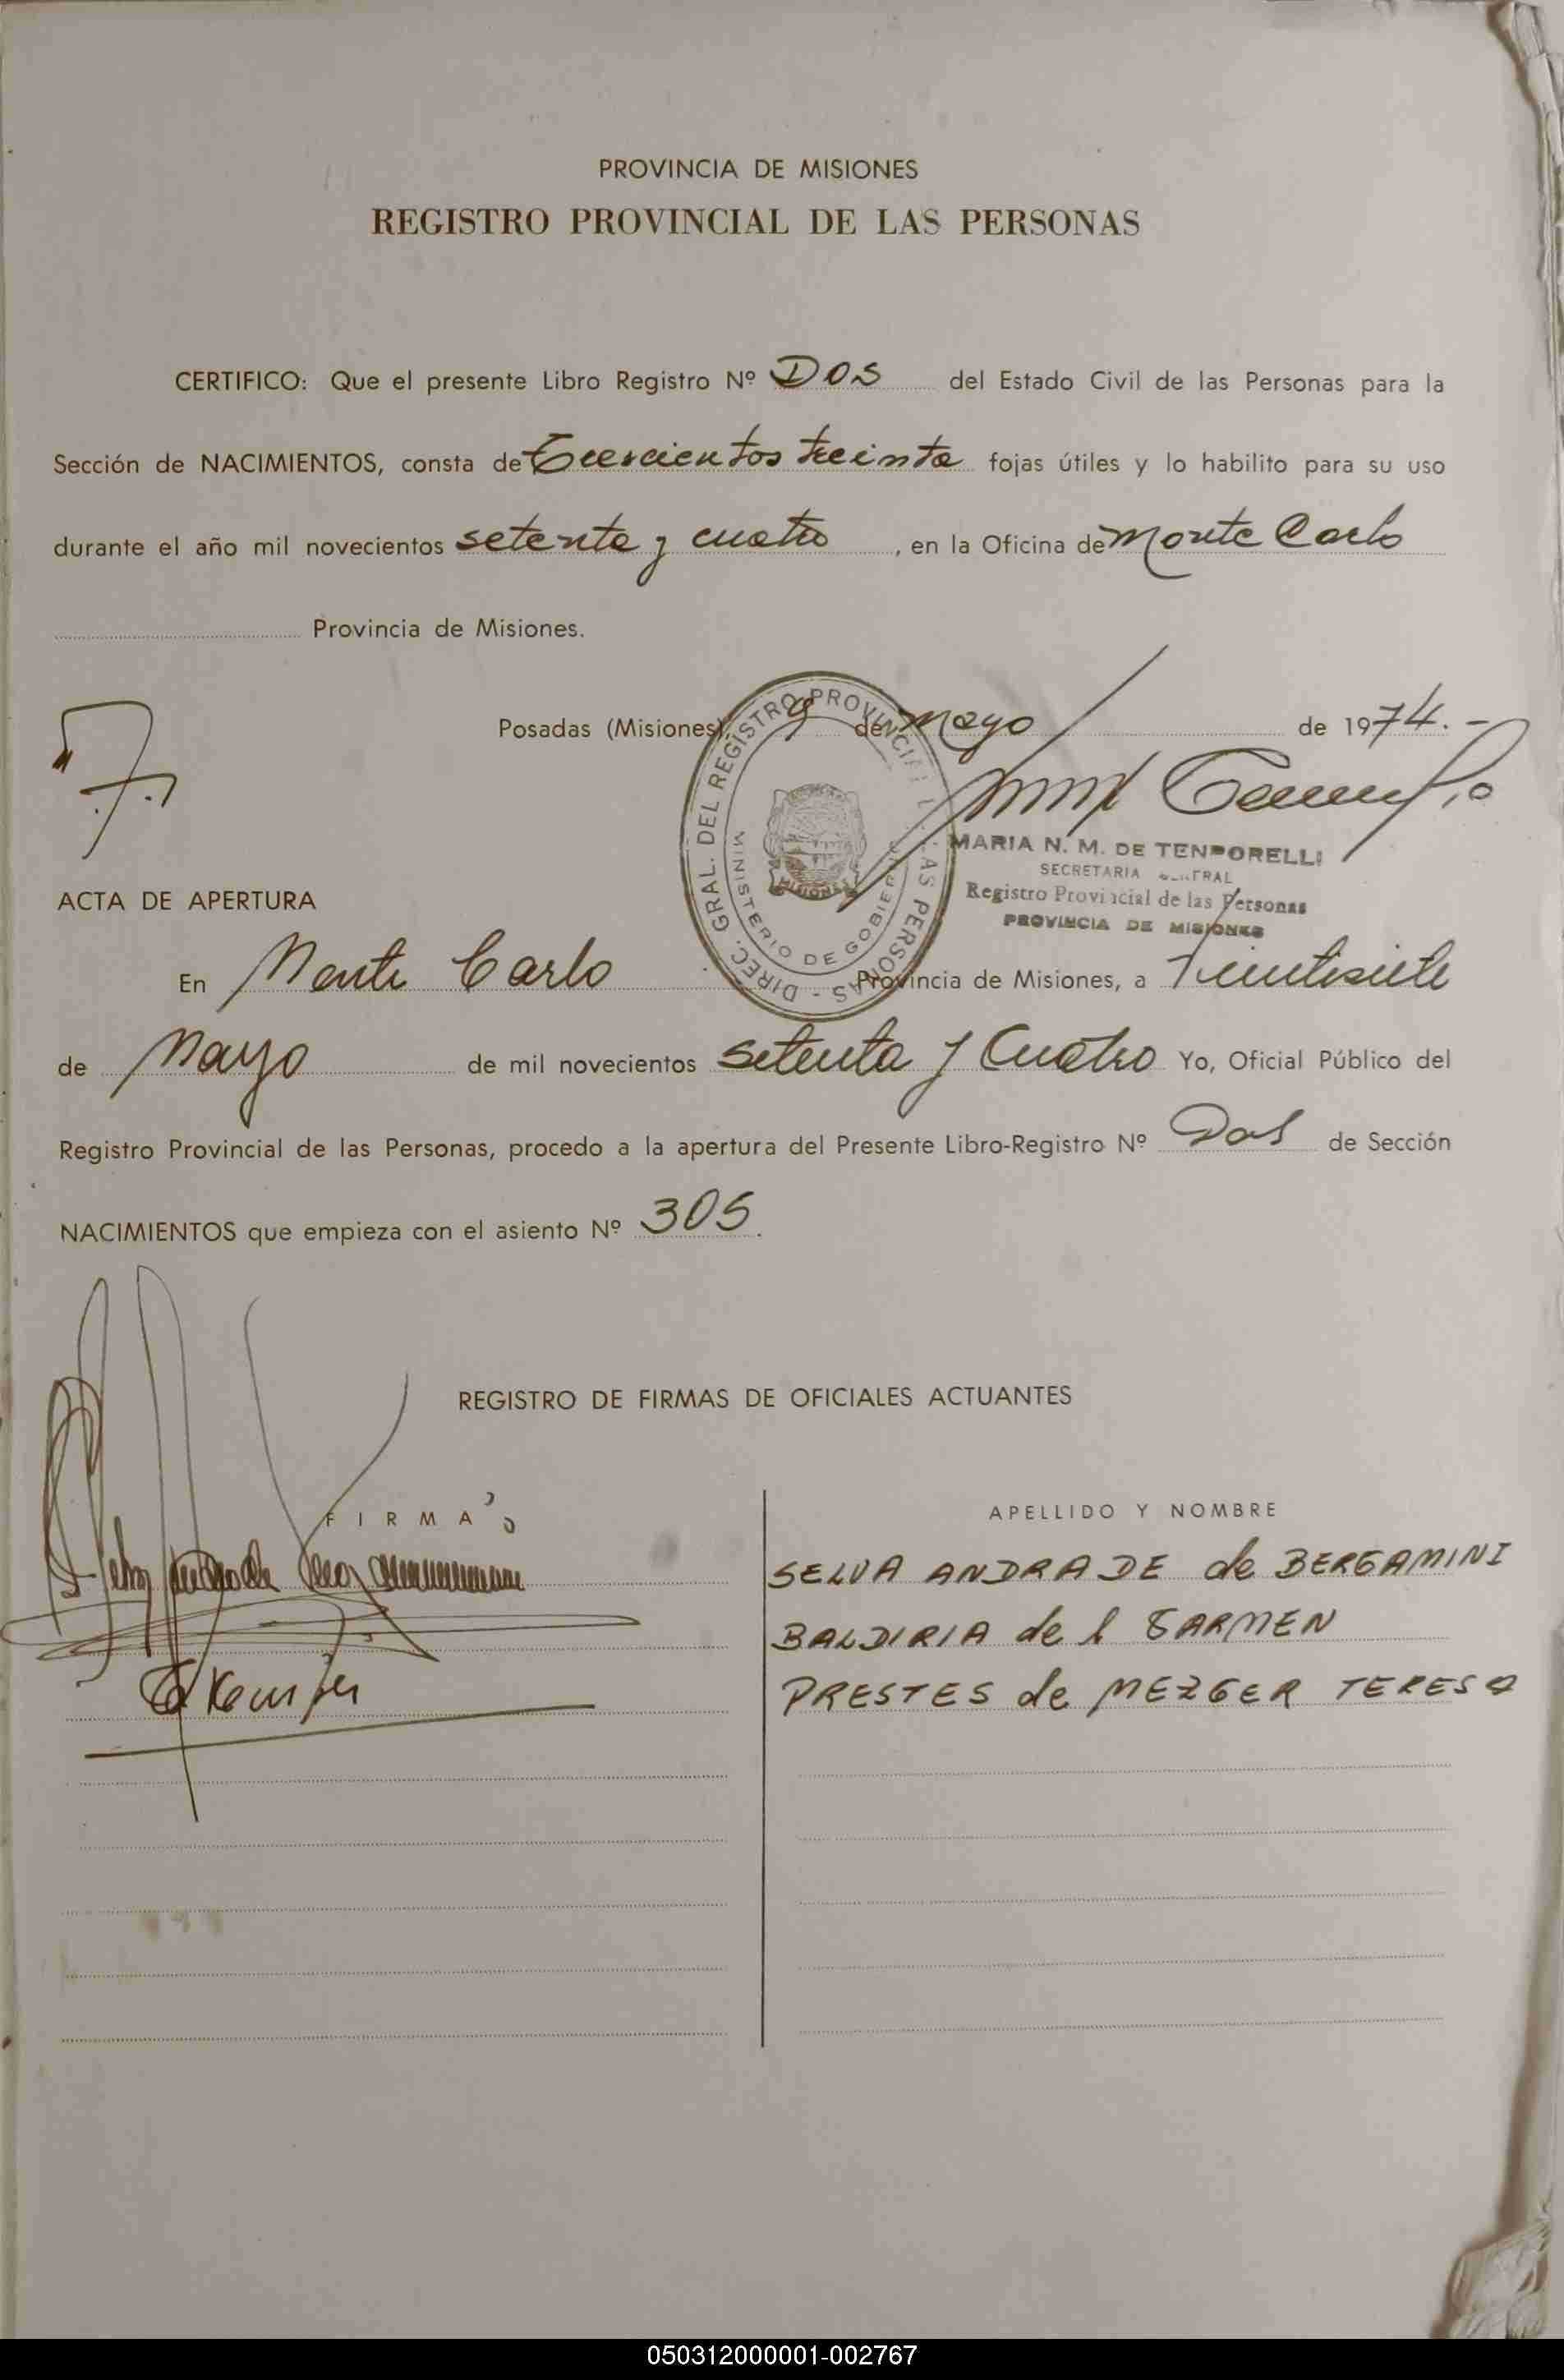 PROVINCIA DE MISIONES
REGISTRO PROVINCIAL DE LAS PERSONAS
CERTIFICO: Que el presente Libro Registro Nº DOS del Estado Civil de las Personas para la
Sección de NACIMIENTOS, consta de Trescientos treinta fojas útiles y lo habilito para su uso
durante el año mil novecientos setenta y cuatro, en la Oficina de Monte Carlo
Provincia de Misiones.
Posadas (Misiones), 9 de mayo de 1974.-
DIREC. GRAL. DEL REGISTRO PROVINCIAL DE LAS PERSONAS -
MINISTERIO DE GOBIERNO
MISIONES
MARIA N. M. DE TEMPORELLI
SECRETARIA GENERAL
Registro Provincial de las Personas
PROVINCIA DE MISIONES
ACTA DE APERTURA
En Monte Carlo Provincia de Misiones, a Veintisiete
de Mayo de mil novecientos setenta y Cuatro Yo, Oficial Público del
Registro Provincial de las Personas, procedo a la apertura del Presente Libro-Registro Nº Dos de Sección
NACIMIENTOS que empieza con el asiento Nº 305.
REGISTRO DE FIRMAS DE OFICIALES ACTUANTES
FIRMA
APELLIDO Y NOMBRE
SELVA ANDRADE de BERGAMINI
BALDIRIA del CARMEN
PRESTES de MEZGER TERESA
050312000001-002767